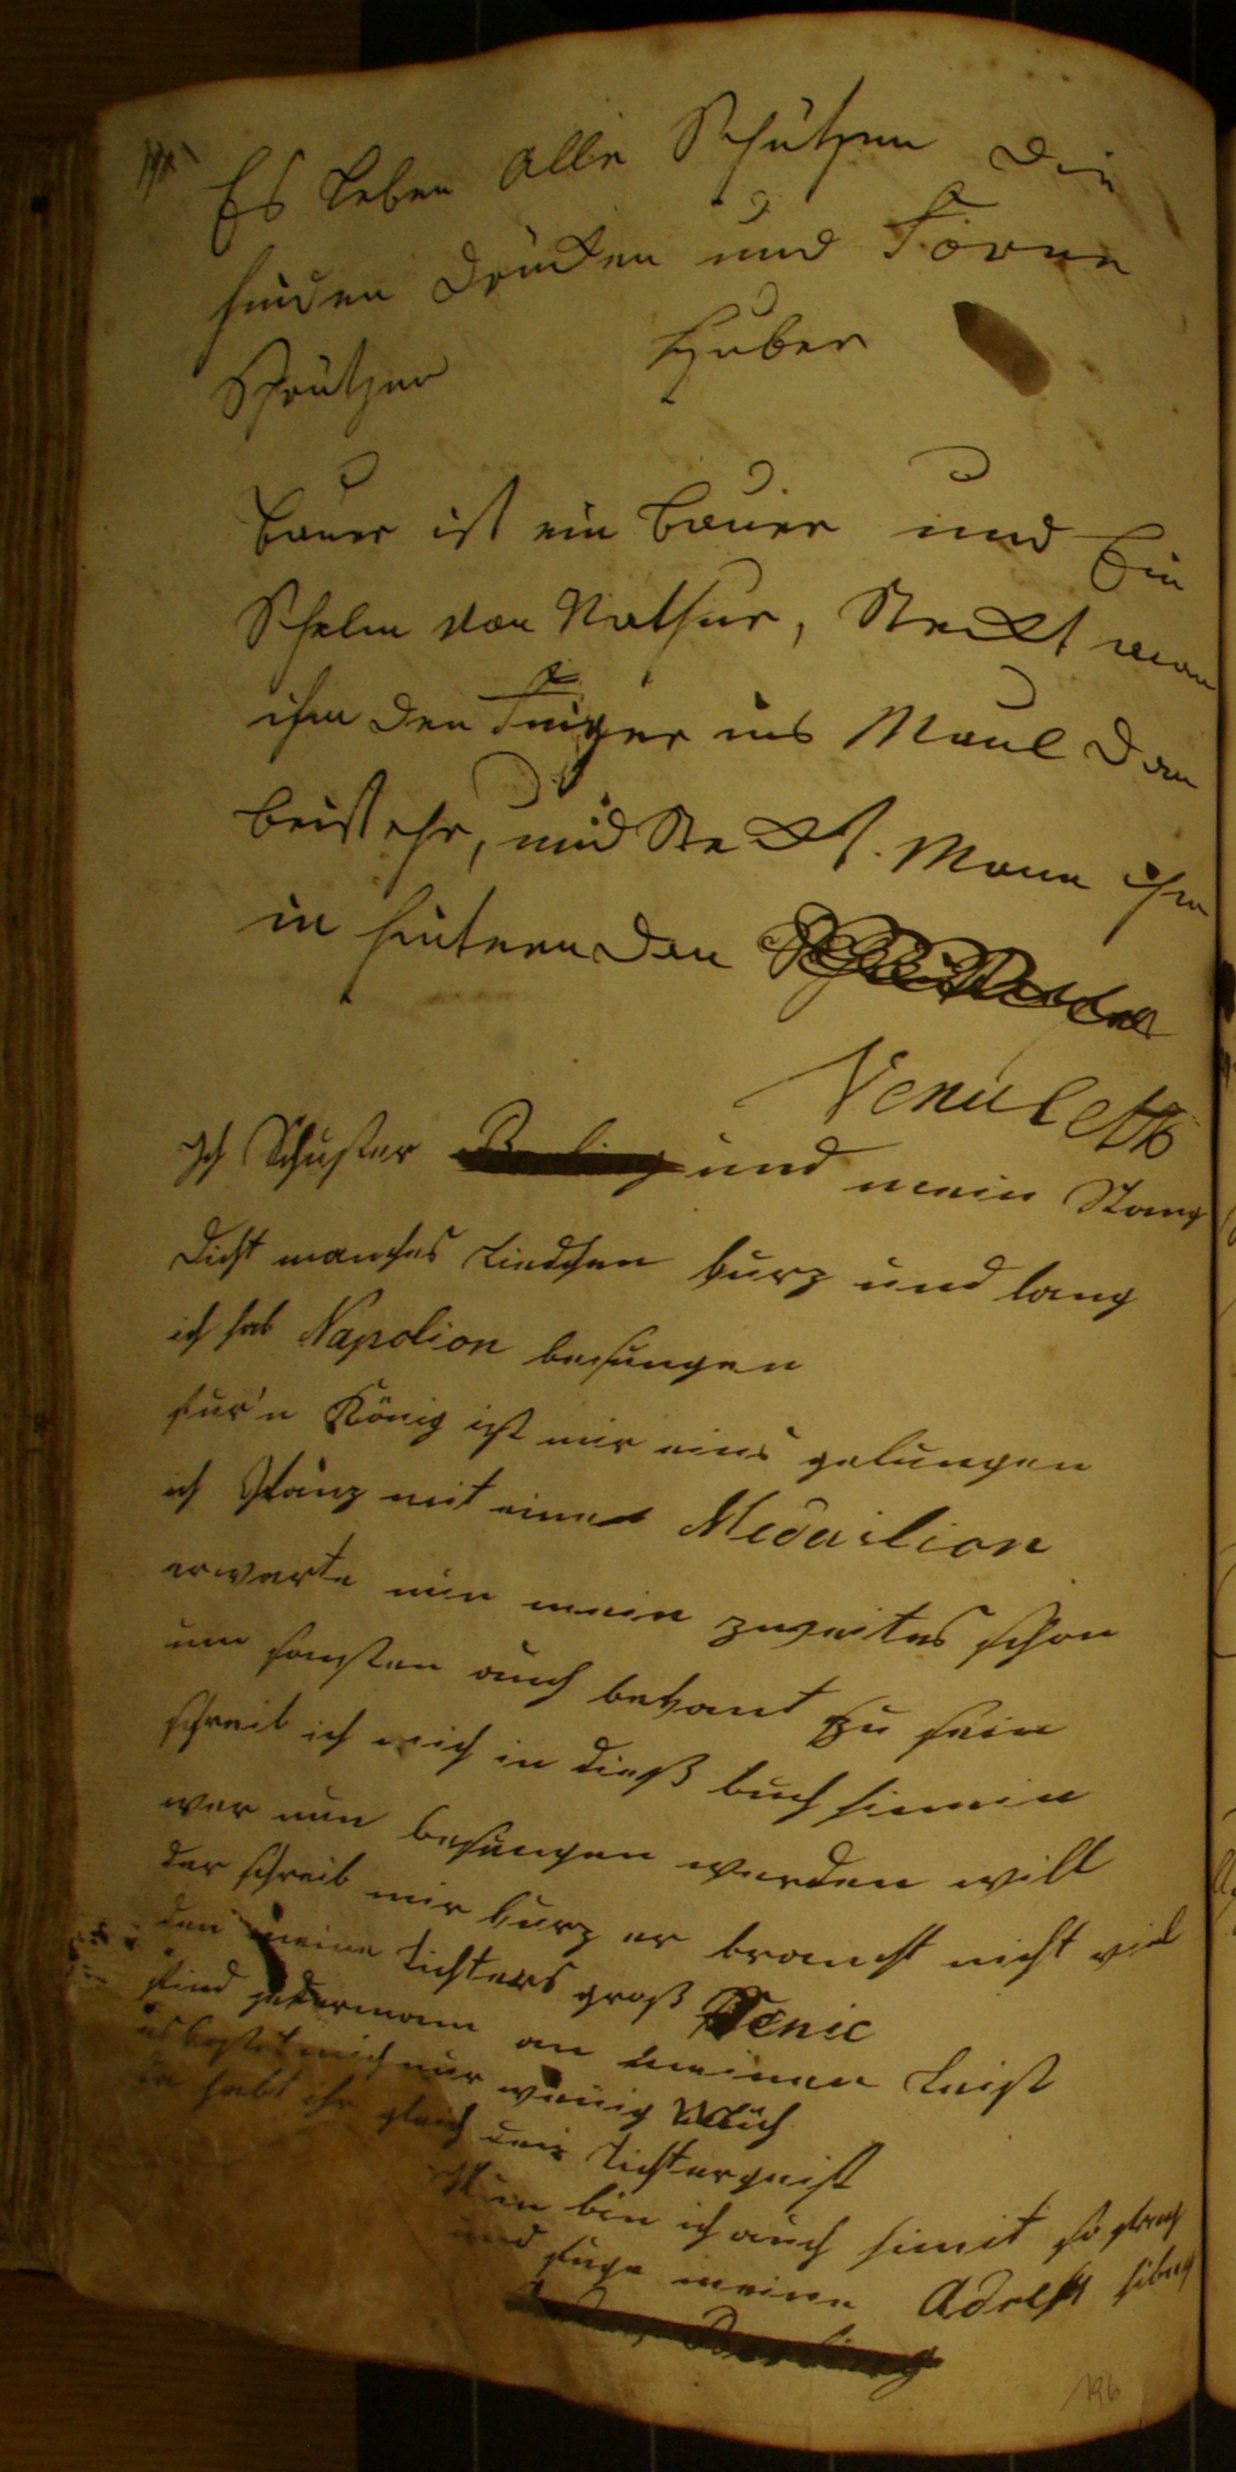 Es leben alle Schützen die
hinden drücken und Forne
Spritzen Huber
Bauer ist ein Bauer und Ein
Schelm von Nathur, Steckt man
ihm den Finger ins Maul dan
beist ehr, und Steckt. Mann ihn
in hintern den
Venuleth
Ich Schuster und mein Stang
Dicht manches Liedchen kurz und lang
ich hab Napolion besungen
für'n König ist mir eins gelungen
ich glänz mit einem Medailion
erwarte nun mein zweites schon
um sonsten auch bekant zu sein
schreib ich mich in dieß buch hinein
wer nun besungen werden will
der schreib mir kurz er braucht nicht viel
den meine Dichters groß Genie
sind jedermann an meinen Leist
es kostet mich nur wenig Müh
so habt ihr gleich den Dichtergeist
Nun bin ich auch hinit so
und füge meine Adress
196